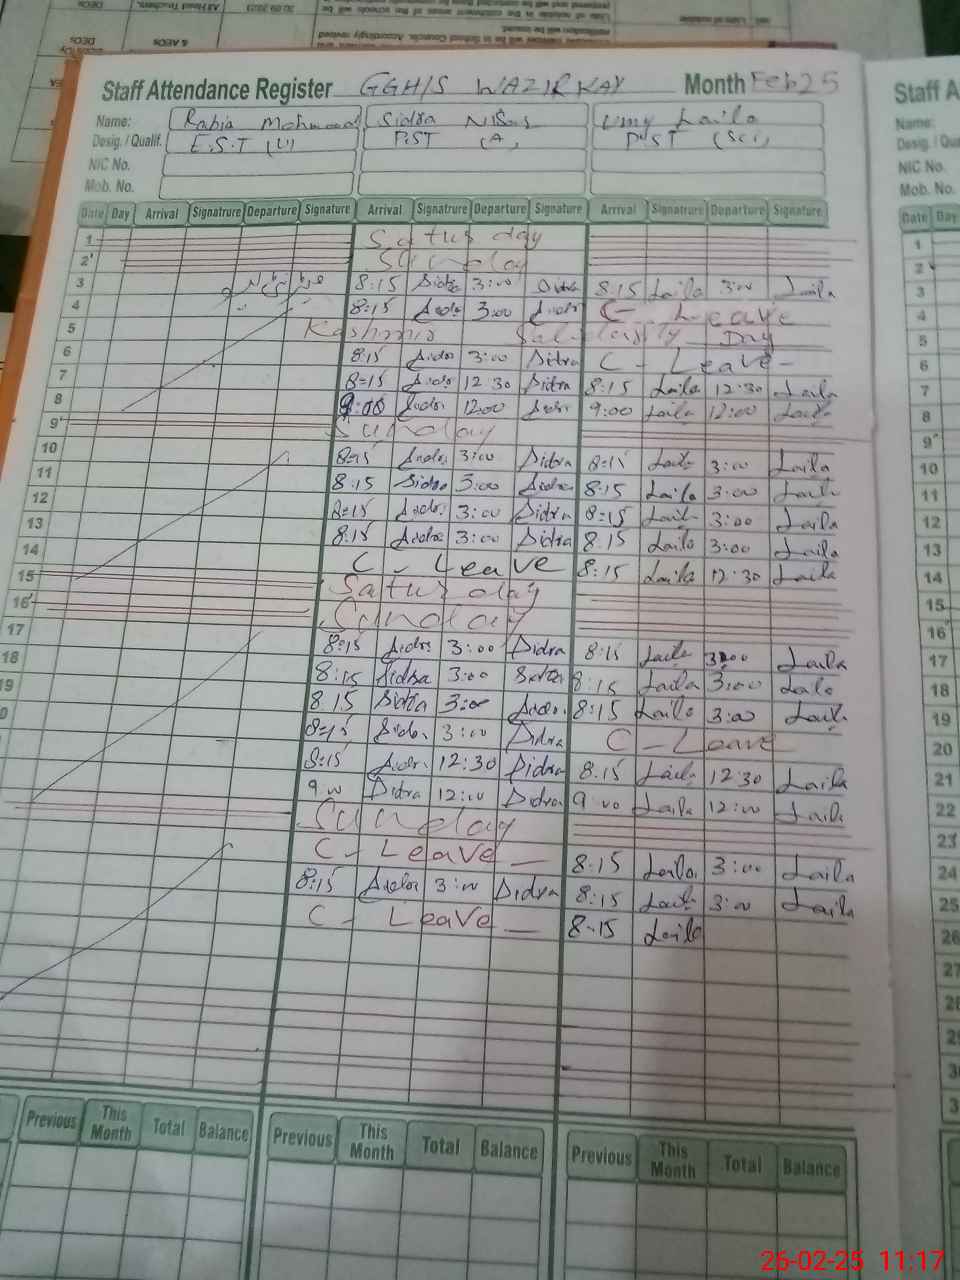 Staff Attendance Register GGH/S WAZIRKAY Month Feb 25
Name: Rabia Mehmood Sidra Nisar Umy Laila
Desig. / Qualif. E.S.T (U) P.ST (A) P.ST (Sci)
NIC No.
Mob. No.
Date Day Arrival Signatrure Departure Signature Arrival Signatrure Departure Signature Arrival Signatrure Departure Signature
1 Saturday
2 Sunday
3 8:15 Sidra 3:00 Sidra 8:15 Laila 3:00 Laila
4 8:15 Sidra 3:00 Sidra C - Leave
5 Kashmir Day
6 8:15 Sidra 3:00 Sidra C - Leave -
7 8=15 Sidra 12 30 Sidra 8:15 Laila 12:30 Laila
8 9:00 Sidra 12:00 Sidra 9:00 Laila 12:00 Laila
9 Sunday
10 8=15 Sidra 3:00 Sidra 8=15 Laila 3:00 Laila
11 8:15 Sidra 3:00 Sidra 8:15 Laila 3:00 Laila
12 8=15 Sidra 3:00 Sidra 8=15 Laila 3:00 Laila
13 8:15 Sidra 3:00 Sidra 8:15 Laila 3:00 Laila
14 C - Leave 8:15 Laila 12:30 Laila
15 Saturday
16 Sunday
17 8:15 Sidra 3:00 Sidra 8:15 Laila 3:00 Laila
18 8:15 Sidra 3:00 Sidra 8:15 Laila 3:00 Laila
19 8.15 Sidra 3:00 Sidra 8:15 Laila 3:00 Laila
8=15 Sidra 3:00 Sidra C - Leave 20
8:15 Sidra 12:30 Sidra 8.15 Laila 12:30 Laila 21
9:00 Sidra 12:00 Sidra 9:00 Laila 12:00 Laila 22
Sunday 23
C - Leave - 8:15 Laila 3:00 Laila 24
8:15 Sidra 3:00 Sidra 8:15 Laila 3:00 Laila 25
C - Leave - 8-15 Laila 26
27
28
Previous This Month Total Balance Previous This Month Total Balance Previous This Month Total Balance
Staff A
Name:
NIC No.
Mob. No.
Date Day
26-02-25 11:17